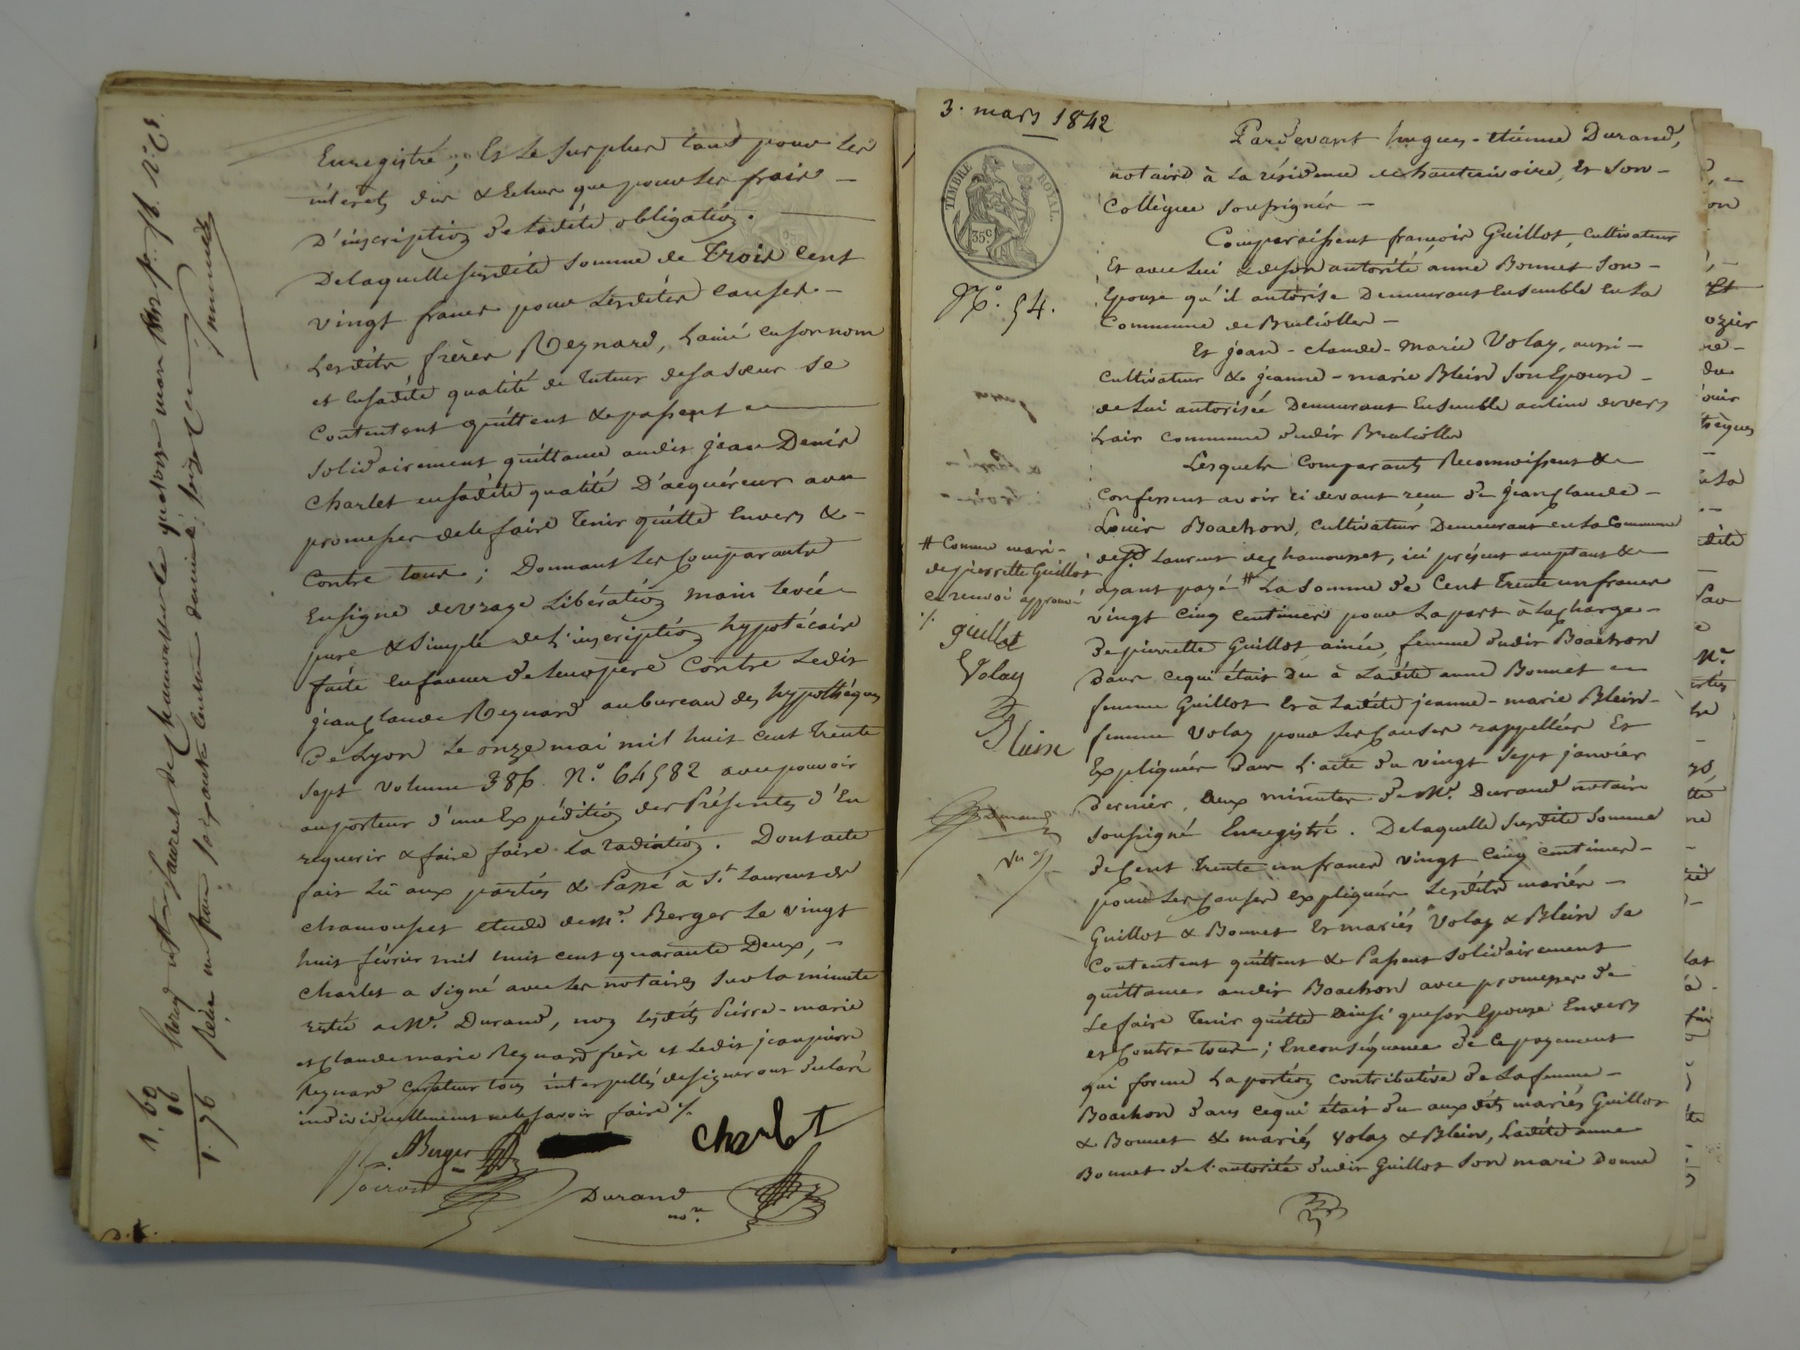 Enregistré, Et Le surplus tant pour Les
intérêts dus & Echus que pour Les frais —
D'inscription de Ladite obligation. —
De laquelle susdite somme de Trois Cent
vingt francs pour Lesdites causes —
Lesdits frères Reynard, L'ainé en son nom
et en sadite qualité de Tuteur de sa sœur se
Contentent quittent & passent
solidairement quittance audit jean Denis
Charlet en sadite qualité D'acquéreur avec
promesses de le faire Tenir quitte Envers &
Contre tous ; Donnant Les Comparants
En signe de vraye Libération main Levée
pure & simple de L'inscription hypotécaire
faite en faveur de leur père Contre Ledit
jean claude Reynard au bureau des hypothèques
De Lyon Le onze mai mil huit cent Trente
sept volume 386 N.o 64582 avec pouvoir
au porteur d'une Expédition des Présentes d'En
requerir & faire faire la radiation. Dont acte
fait Lû aux parties & Passé à S.t Laurent de
chamousset etude de M.e Berger Le vingt
huit février mil huit cent quarante Deux, —
Charlet a signé avec Les notaires sur la minute
restée a M.e Durand, non lesdits Pierre-marie
et Claude marie Reynard frère et Ledit jean pierre
Reynard curateur tous interpellés de signer ont déclaré
individuellement ne le savoir faire ./.
Berger
Charlet
Durand
no.re
1,60
16
1.76
3. mars 1842
TIMBRE ROYAL.
35c
N.o 54.
Pardevant hugues-etienne Durand,
notaire à La résidence de hauterivoire, Et Son
Collègue soussignés —
Comparaissent françois Guillot, Cultivateur
Et avec Lui & de son autorité anne Bonnet Son
Epouse qu'il autorise Demeurant Ensemble En La
Commune de Brullioles —
Et jean-claude-marie Volay, aussi
Cultivateur & jeanne-marie Blein Son Epouse
de Lui autorisée Demeurant Ensemble au lieu de vers
Lair commune dudit Brullioles
Lesquels Comparants Reconnoissent &
Confessent avoir ci devant reçu de jean claude
Louis Boachon, Cultivateur Demeurant en La Commune
de S.t Laurent de chamousset, ici présent acceptant &
ayant payé # La somme de Cent Trente un francs
vingt Cinq centimes pour La part à La charge
de pierrette Guillot ainée, femme dudit Boachon
Dans Ce qui était Dû à Ladite anne Bonnet
femme Guillot Et à Ladite jeanne-marie Blein
femme Volay pour Les Causes rappellées Et
Expliquées dans L'acte du vingt Sept janvier
dernier, aux minutes de M.e Durand notaire
soussigné Enregistré. De laquelle Susdite Somme
de Cent Trente un francs vingt Cinq centimes
pour Les Causes Expliquées Lesdits mariés
Guillot & Bonnet Et mariés Volay & Blein Se
Contentent quittent & Passent solidairement
quittance audit Boachon avec promesses de
Le faire Tenir quitte ainsi que son Epouse Envers
et Contre tous ; En conséquence de Ce payement
qui forme La portion contributive de La femme
Boachon dans Ce qui était du aux dits mariés Guillot
& Bonnet & mariés Volay & Blein, Ladite anne
Bonnet de l'autorité dudit Guillot Son mari Donne
# Comme mari
de pierrette Guillot
ce renvoi approuvé
./.
guillot
Volay
Blein
Durand